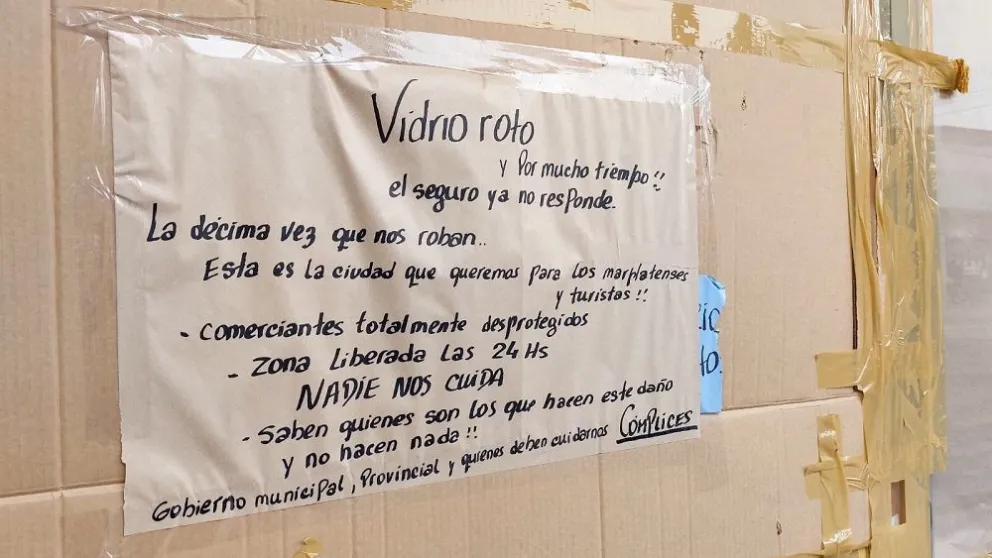 Vidrio roto
y Por mucho tiempo!!
el seguro ya no responde.
La décima vez que nos roban..
Esta es la ciudad que queremos para los marplatenses
y turistas!!
- comerciantes totalmente desprotegidos
- Zona Liberada Las 24 Hs
NADIE NOS CUIDA
- Saben quienes son los que hacen este daño
y no hacen nada!!
Gobierno municipal, Provincial y quienes deben cuidarnos CÓMPLICES